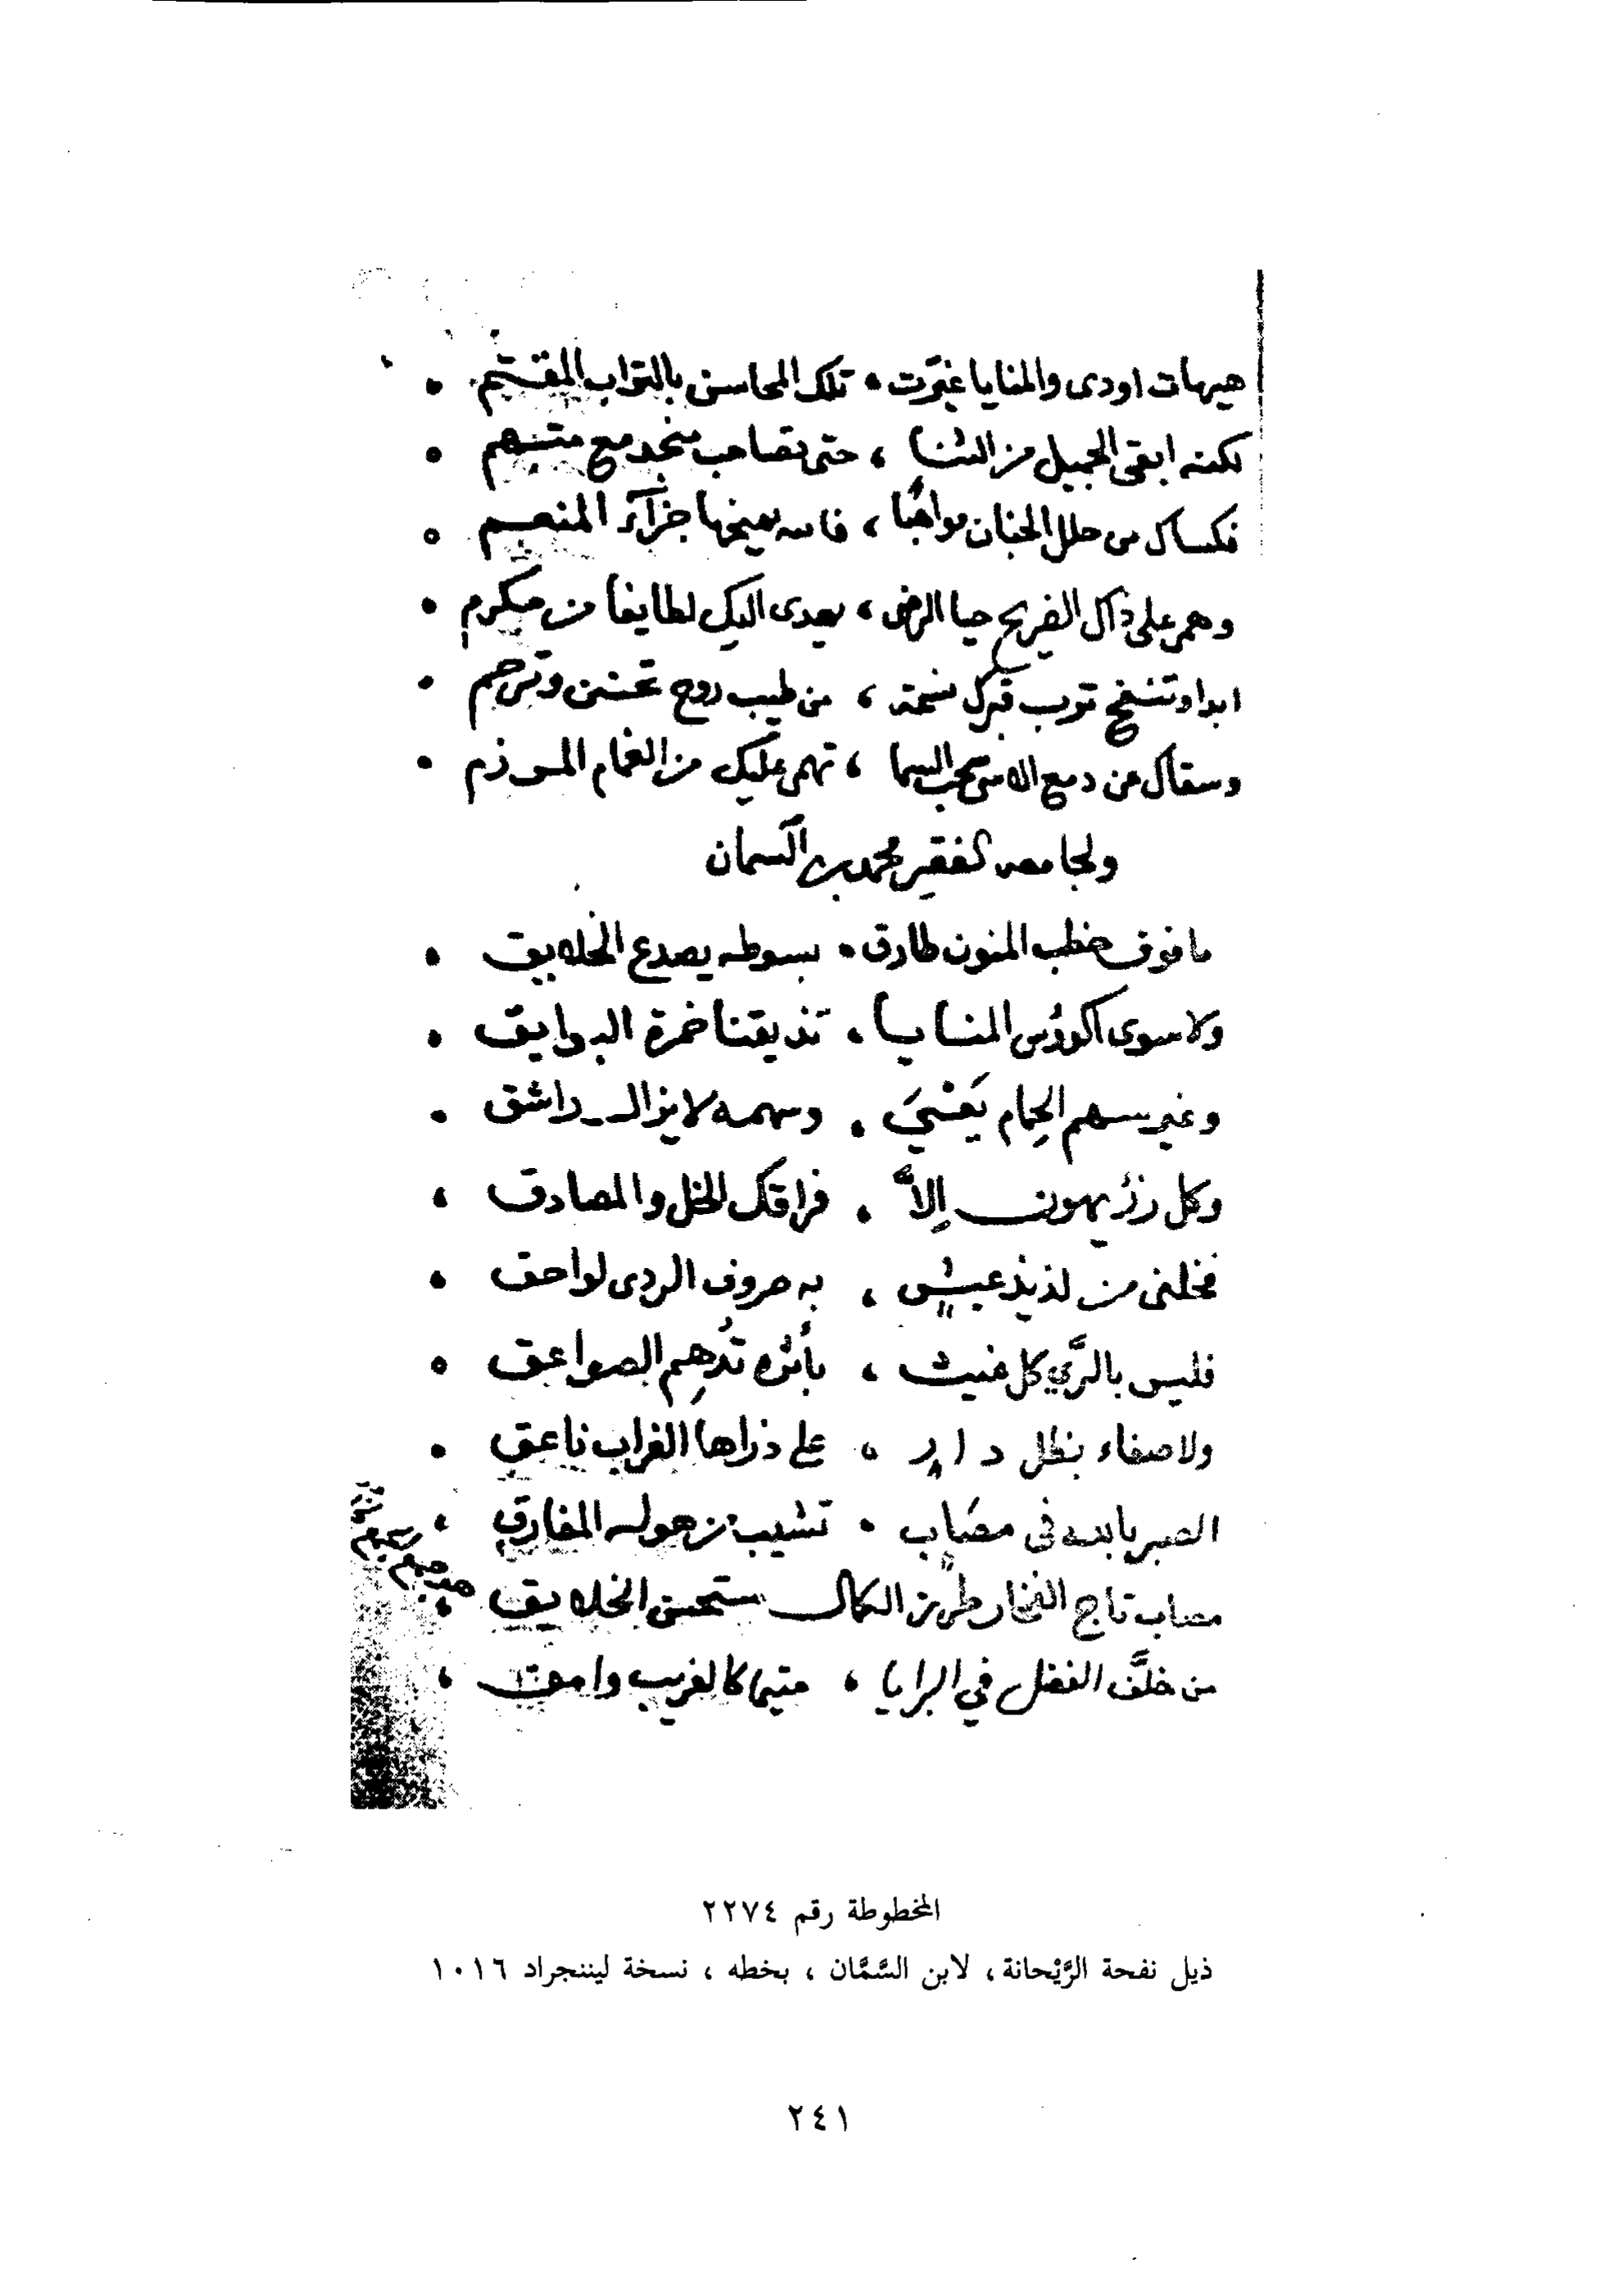 هيهات اودى والمنايا غيّرت • تلك المحاسن بالتراب المقتم •
لكنه ابقى الجميل من الثنا ، حتى تصاحب منجد مع متهم •
فكساك من حلل الجنان مواهبًا ، فالله يمنحها جزآء المنعم •
وهمى على ذاك الضريح حيا الرضى ، يهدى اليك لطايفا من مكرم •
ابدا وتنفح ترب قبرك نسمة ، من طيب روح تحنن وترحم •
وسقاك عن دمع الاسى سحب السما ، تهمى عليك من الغمام المرزم •
ولجامعه الفقير محمد بن السمان
ما فوق خطب المنون طارق • بسوطه يصدع الخلايق •
ولا سوى اكؤس المنايا ، تذيقنا خمرة البوايق •
وغير سهم الحِمام يَفْنىَ ، وسهمه لا يزال راشق •
وكل رزء يهون إلاَّ ، فراقك الخل والمصادق ،
فخلنى من لذيذ عيش ، به صروف الردى لواحق •
فليس بالرَّي كل غيث ، بأثره تدهم الصواعق •
ولا صفاء بظل دار ، على ذراها الغراب ناعق •
الصبر يا بده فى مصَاب • تشيب من هوله المفارق ،
مصاب تاج الفخار طرز الكمال مستحسن الخلايق
من خلَّف الفضل في البرايا ، متيما كالغريب وامق ،
المخطوطة رقم ٢٢٧٤
ذيل نفحة الرَّيْحانة ، لابن السَّمَّان ، بخطه ، نسخة ليننجراد ١٠١٦
٢٤١